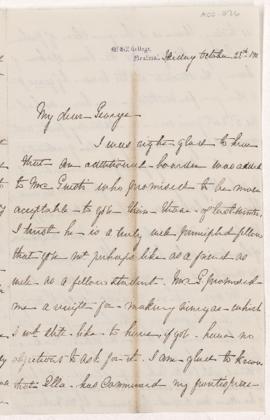 McGill College,
Montreal. Friday October 25th
My dear George
I was right glad to hear
that an additional boarder was added
to McG who promised to be more
acceptable to you than those of last winter.
I trust he is a truly well principled fellow
that you wd perhaps like as a friend as
well as a fellow student. Mr G promised
me a for making vinegar - which
I wd still like to have if you have no
objections to ask for it. I am glad to know
that Ella has commenced my